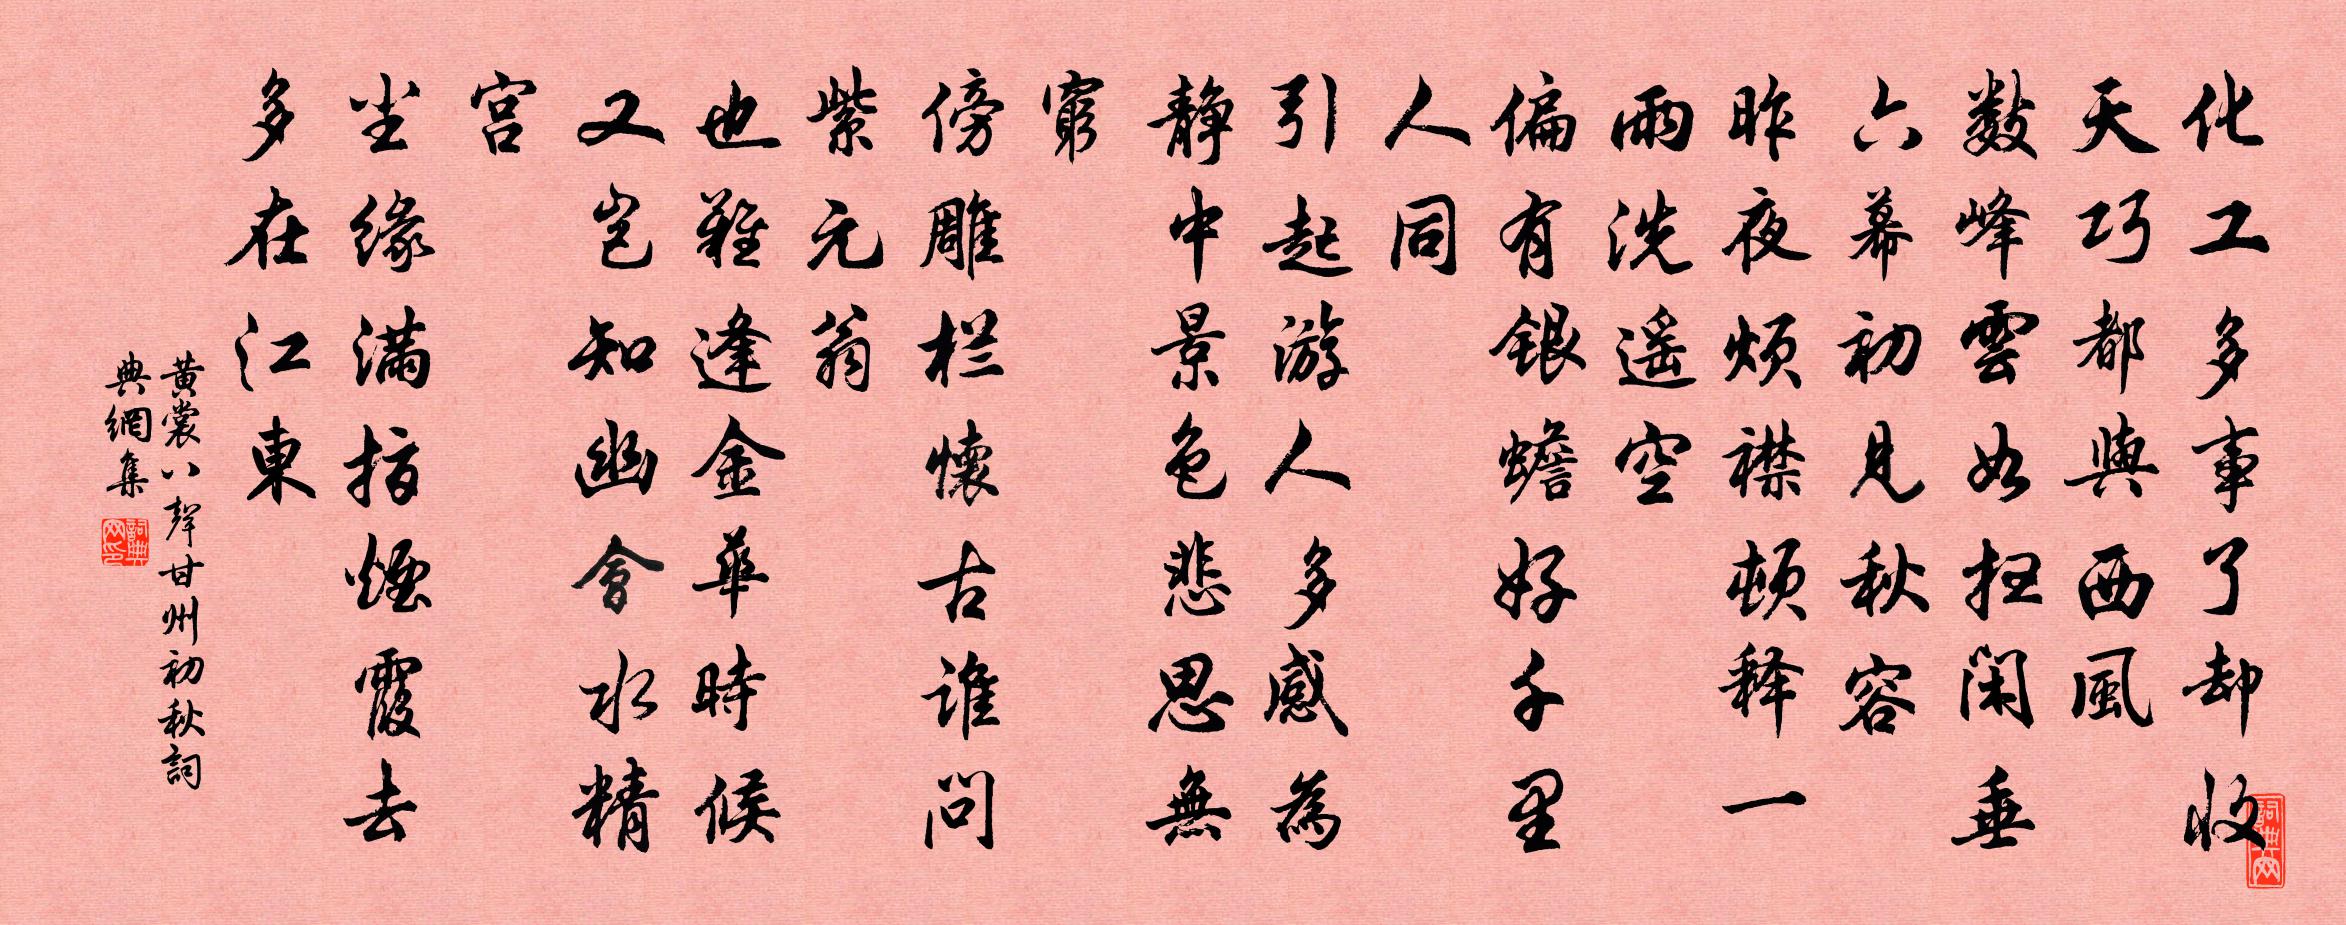 化工多事了却收
天巧都與西風
数峰雲如扫闲垂
六幕初见秋容
昨夜烦襟顿释一
雨洗遥空
偏有银蟾好千里
人同
引起游人多感為
静中景色悲思無
窮
傍雕栏懷古谁问
紫元翁
也難逢金華時候
又岂知幽會水精
宫
尘缘满指煙霞去
多在江東
黄裳八聲甘州初秋詞
典網集
詞典网
詞典网印